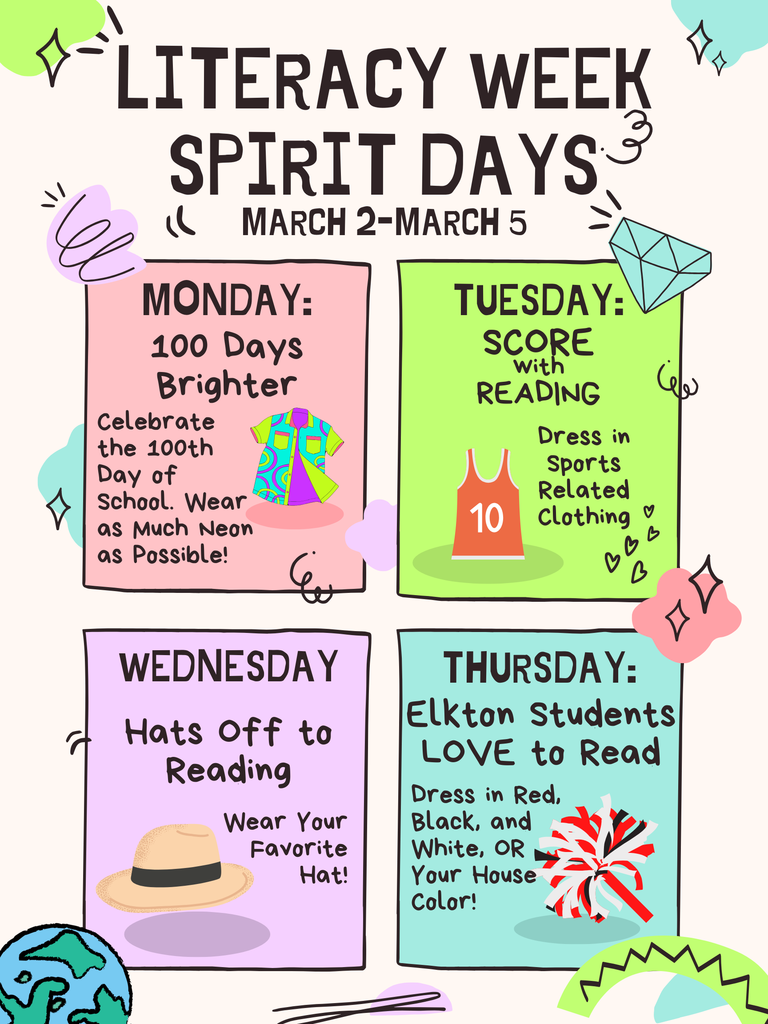 LITERACY WEEK
SPIRIT DAYS
MARCH 2-MARCH 5
MONDAY:
100 Days
Brighter
Celebrate
the 100th
Day of
School. Wear
as Much Neon
as Possible!
TUESDAY:
SCORE
with
READING
Dress in
Sports
Related
Clothing
10
WEDNESDAY
Hats Off to
Reading
Wear Your
Favorite
Hat!
THURSDAY:
Elkton Students
LOVE to Read
Dress in Red,
Black, and
White, OR
Your House
Color!